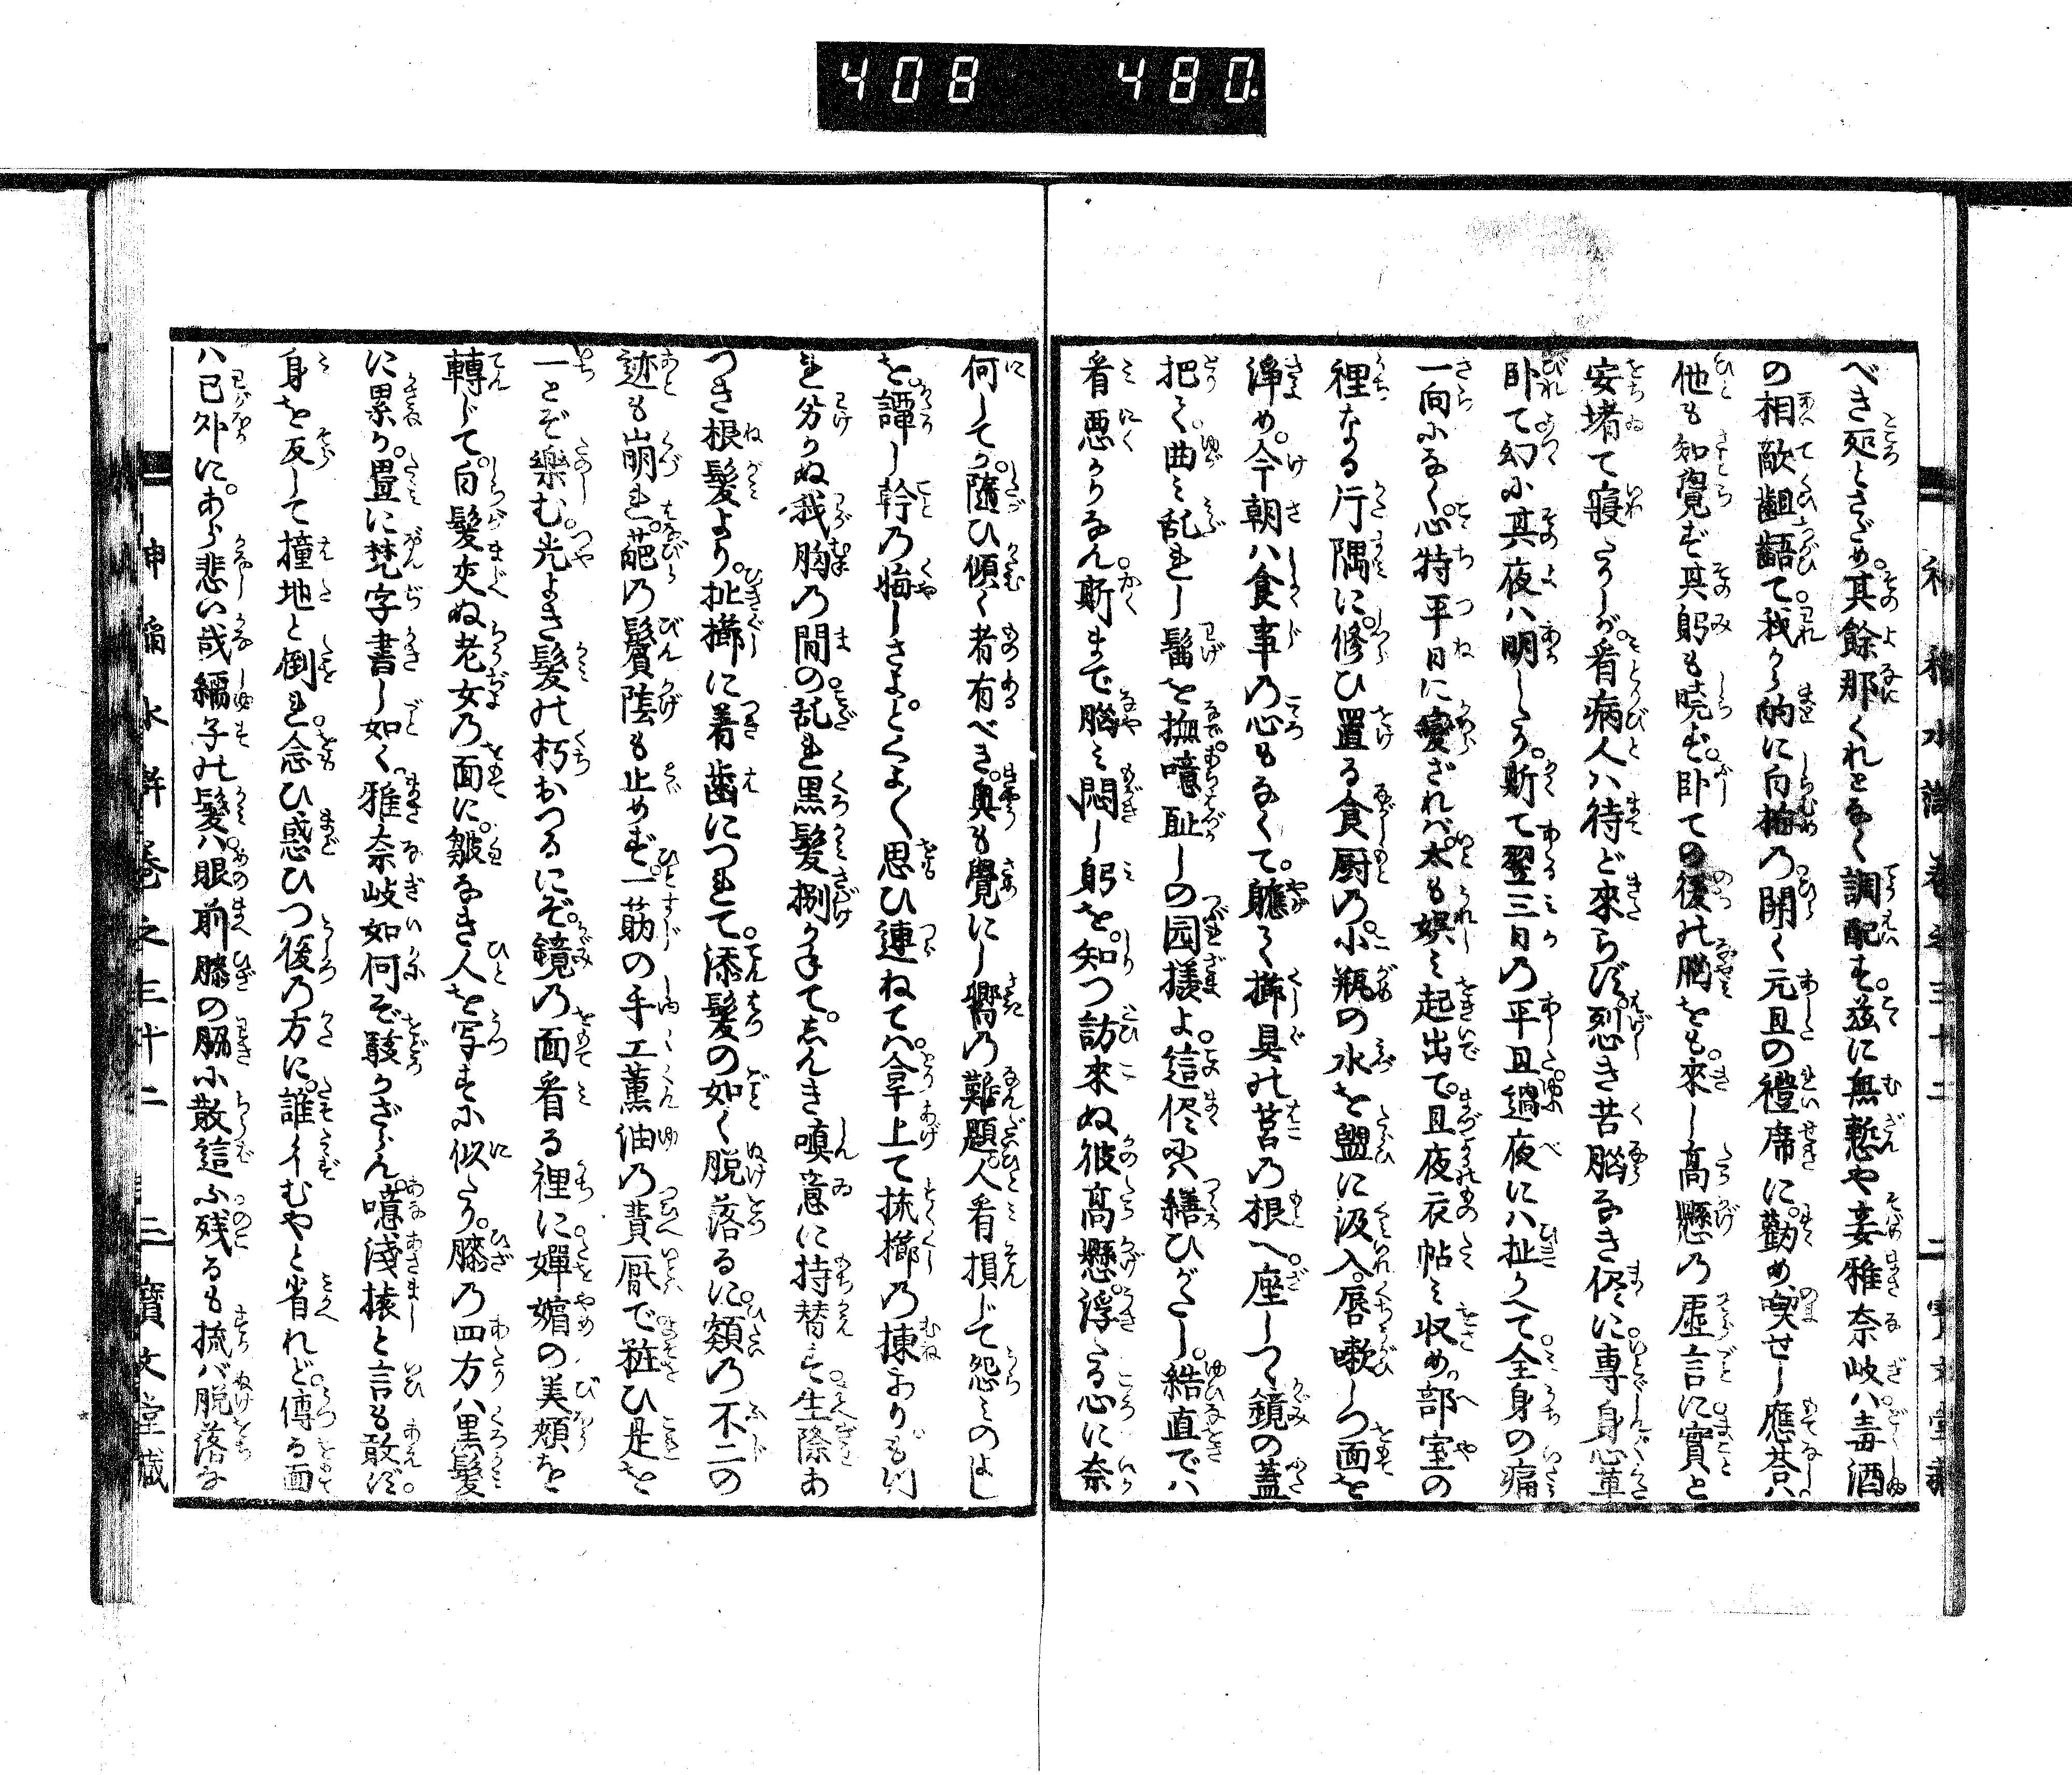 408 480
べき処とさだめ。其餘那くれとなく調配す。茲に無慙や妾雅奈岐ハ毒酒
の相敵齟齬て。我から納に白梅の開く元旦の禮席に。勸め喫せし應荅ハ
他も知覺ず其躬も暁ず。卧ての後の脳をも。來し高懸の虚言に。實と
安堵て寝たりしが。看病人ハ待ど來らず。烈き苦脳なき侭に。専身心葷
卧て幻に其夜ハ明したり。斯て翌三日の平旦過夜にハ扯かへて。全身の痛
一向になく。心特平日に變ざれバ。太も娯み起出て。且夜衣帖み収め。部室の
裡なる片隅に。修ひ置る食厨の。小瓶の水を盥に汲入。唇嗽しつ面を
淨め。今朝ハ食事の心もなくて。軈て櫛具の筥の根へ。座しつ鏡の蓋
把て。曲み乱れし髷を撫。噫耻しの囮様よ。這侭ハ繕ひがたし。結直でハ
看悪からなん。斯まで脳み悶し躬を。知つ訪來ぬ彼高懸。浮たる心に奈
何してか。隨ひ傾く者有べき。奥も覺にし嚮の難題。人看損じて怨みのよし
を。譚し幹の悔しさよ。とくよく思ひ連ねてハ。拿上て梳櫛の棟おりも。
れ分かぬ我胸の間の。乱れ黒髪捌かねて。しんき嗔意に持替す。生際あ
つき根髪より。扯櫛に着歯につれて。添髪の如く脱落るに。額の不二の
迹も崩れ。葩の鬢陰も止めず。一筋の手工薫油の費厭で粧ひ是を
一とぞ樂む。光よき髪の朽おつるにぞ。鏡の面看る裡に。嬋媚の美頬を
轉じて。白髪交ぬ老女の面に。皺なき人を写すに似たり。膝の四方ハ黒髪
に累か。畳に梵字書し如く。雅奈岐如何ぞ駭かざらん。噫淺猿と言も敢ず。
身を反して撞地と倒れ。念ひ惑ひつ後の方に。誰イむやと省れど。傳る面
ハ已外に。あら悲い哉繻子の髪ハ。眼前膝の脇に散。這に残るも梳バ脱落な
神稲水滸巻之三十二 二 寶文堂藏